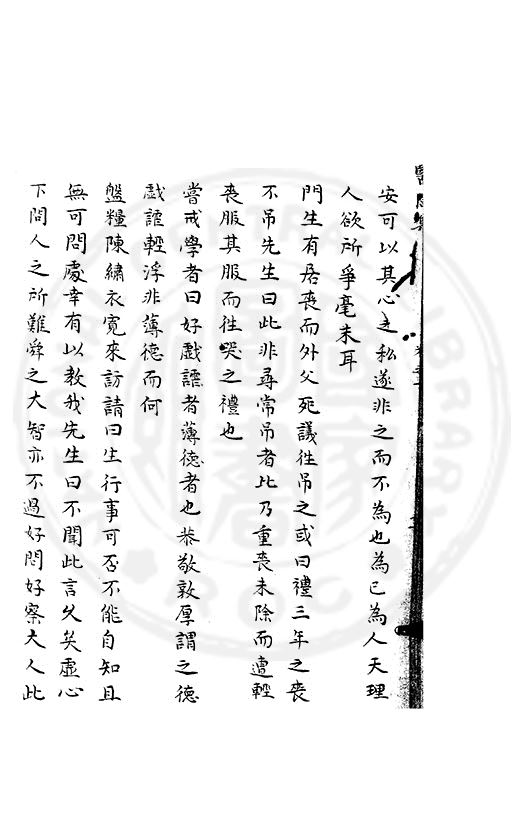 安可以其心之私遂非之而不為也為己為人天理
人欲所爭毫末耳
門生有居喪而外父死議徃吊之或曰禮三年之喪
不吊先生曰此非尋常吊者比乃重喪未除而遭輕
喪服其服而徃哭之禮也
嘗戒學者曰好戲謔者薄徳者也恭敬敦厚謂之徳
戲謔輕浮非薄德而何
盤糧陳繡衣寛來訪請曰生行事可否不能自知且
無可問處幸有以教我先生曰不聞此言久矣虛心
下問人之所難舜之大智亦不過好問好察大人此